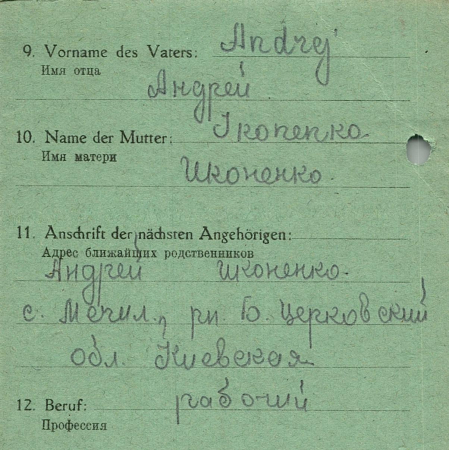 9. Vorname des Vaters: Andrej
Имя отца
Андрей
10. Name der Mutter: Ikonenko
Имя матери
Иконенко
11. Anschrift der nächsten Angehörigen:
Адрес ближайших родственников
Андрей Иконенко
с. Мечил, рн Б. Церковский
обл. Киевская
12. Beruf: рабочий
Профессия